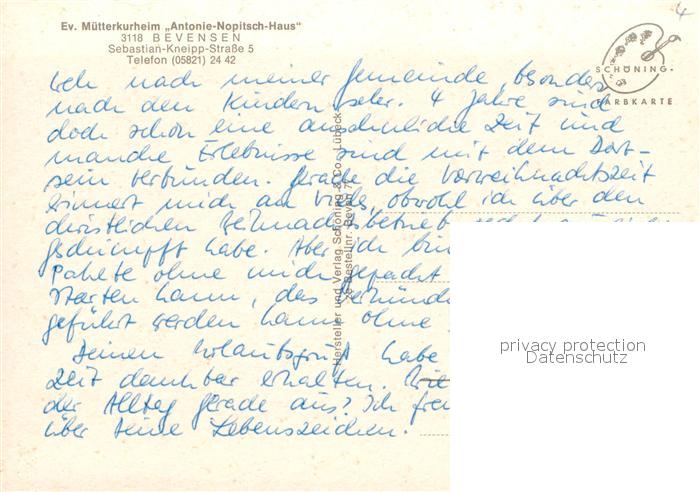 Ev. Mütterkurheim „Antonie-Nopitsch-Haus"
3118 BEVENSEN
Sebastian-Kneipp-Straße 5
Telefon (05821) 24 42
4
SCHÖNING
FARBKARTE
nach meiner Gemeinde besonders
nach den Kindern sehr. 4 Jahre sind
doch schon eine ansehnliche Zeit und
manche Erlebnisse sind mit dem Dort-
sein verbunden. Gerade die Vorweihnachtszeit
erinnert mich an vieles, obwohl ich über den
christlichen Weihnachtsbetrieb
geschimpft habe. Aber ich bin
Pakete ohne mich gepackt
starten kann, das
geführt werden kann ohne
Deinen Urlaubsgruß habe
Zeit dankbar erhalten. Wie
der Alltag gerade aus? Ich
über Deine Lebenszeichen.
Hersteller und Verlag Schöning & Co., Lübeck
Bestellnr. Beven
privacy protection
Datenschutz